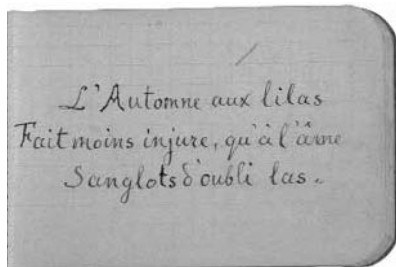 L'Automne aux lilas
Fait moins injure, qu'à l'âme
Sanglots d'oubli las..